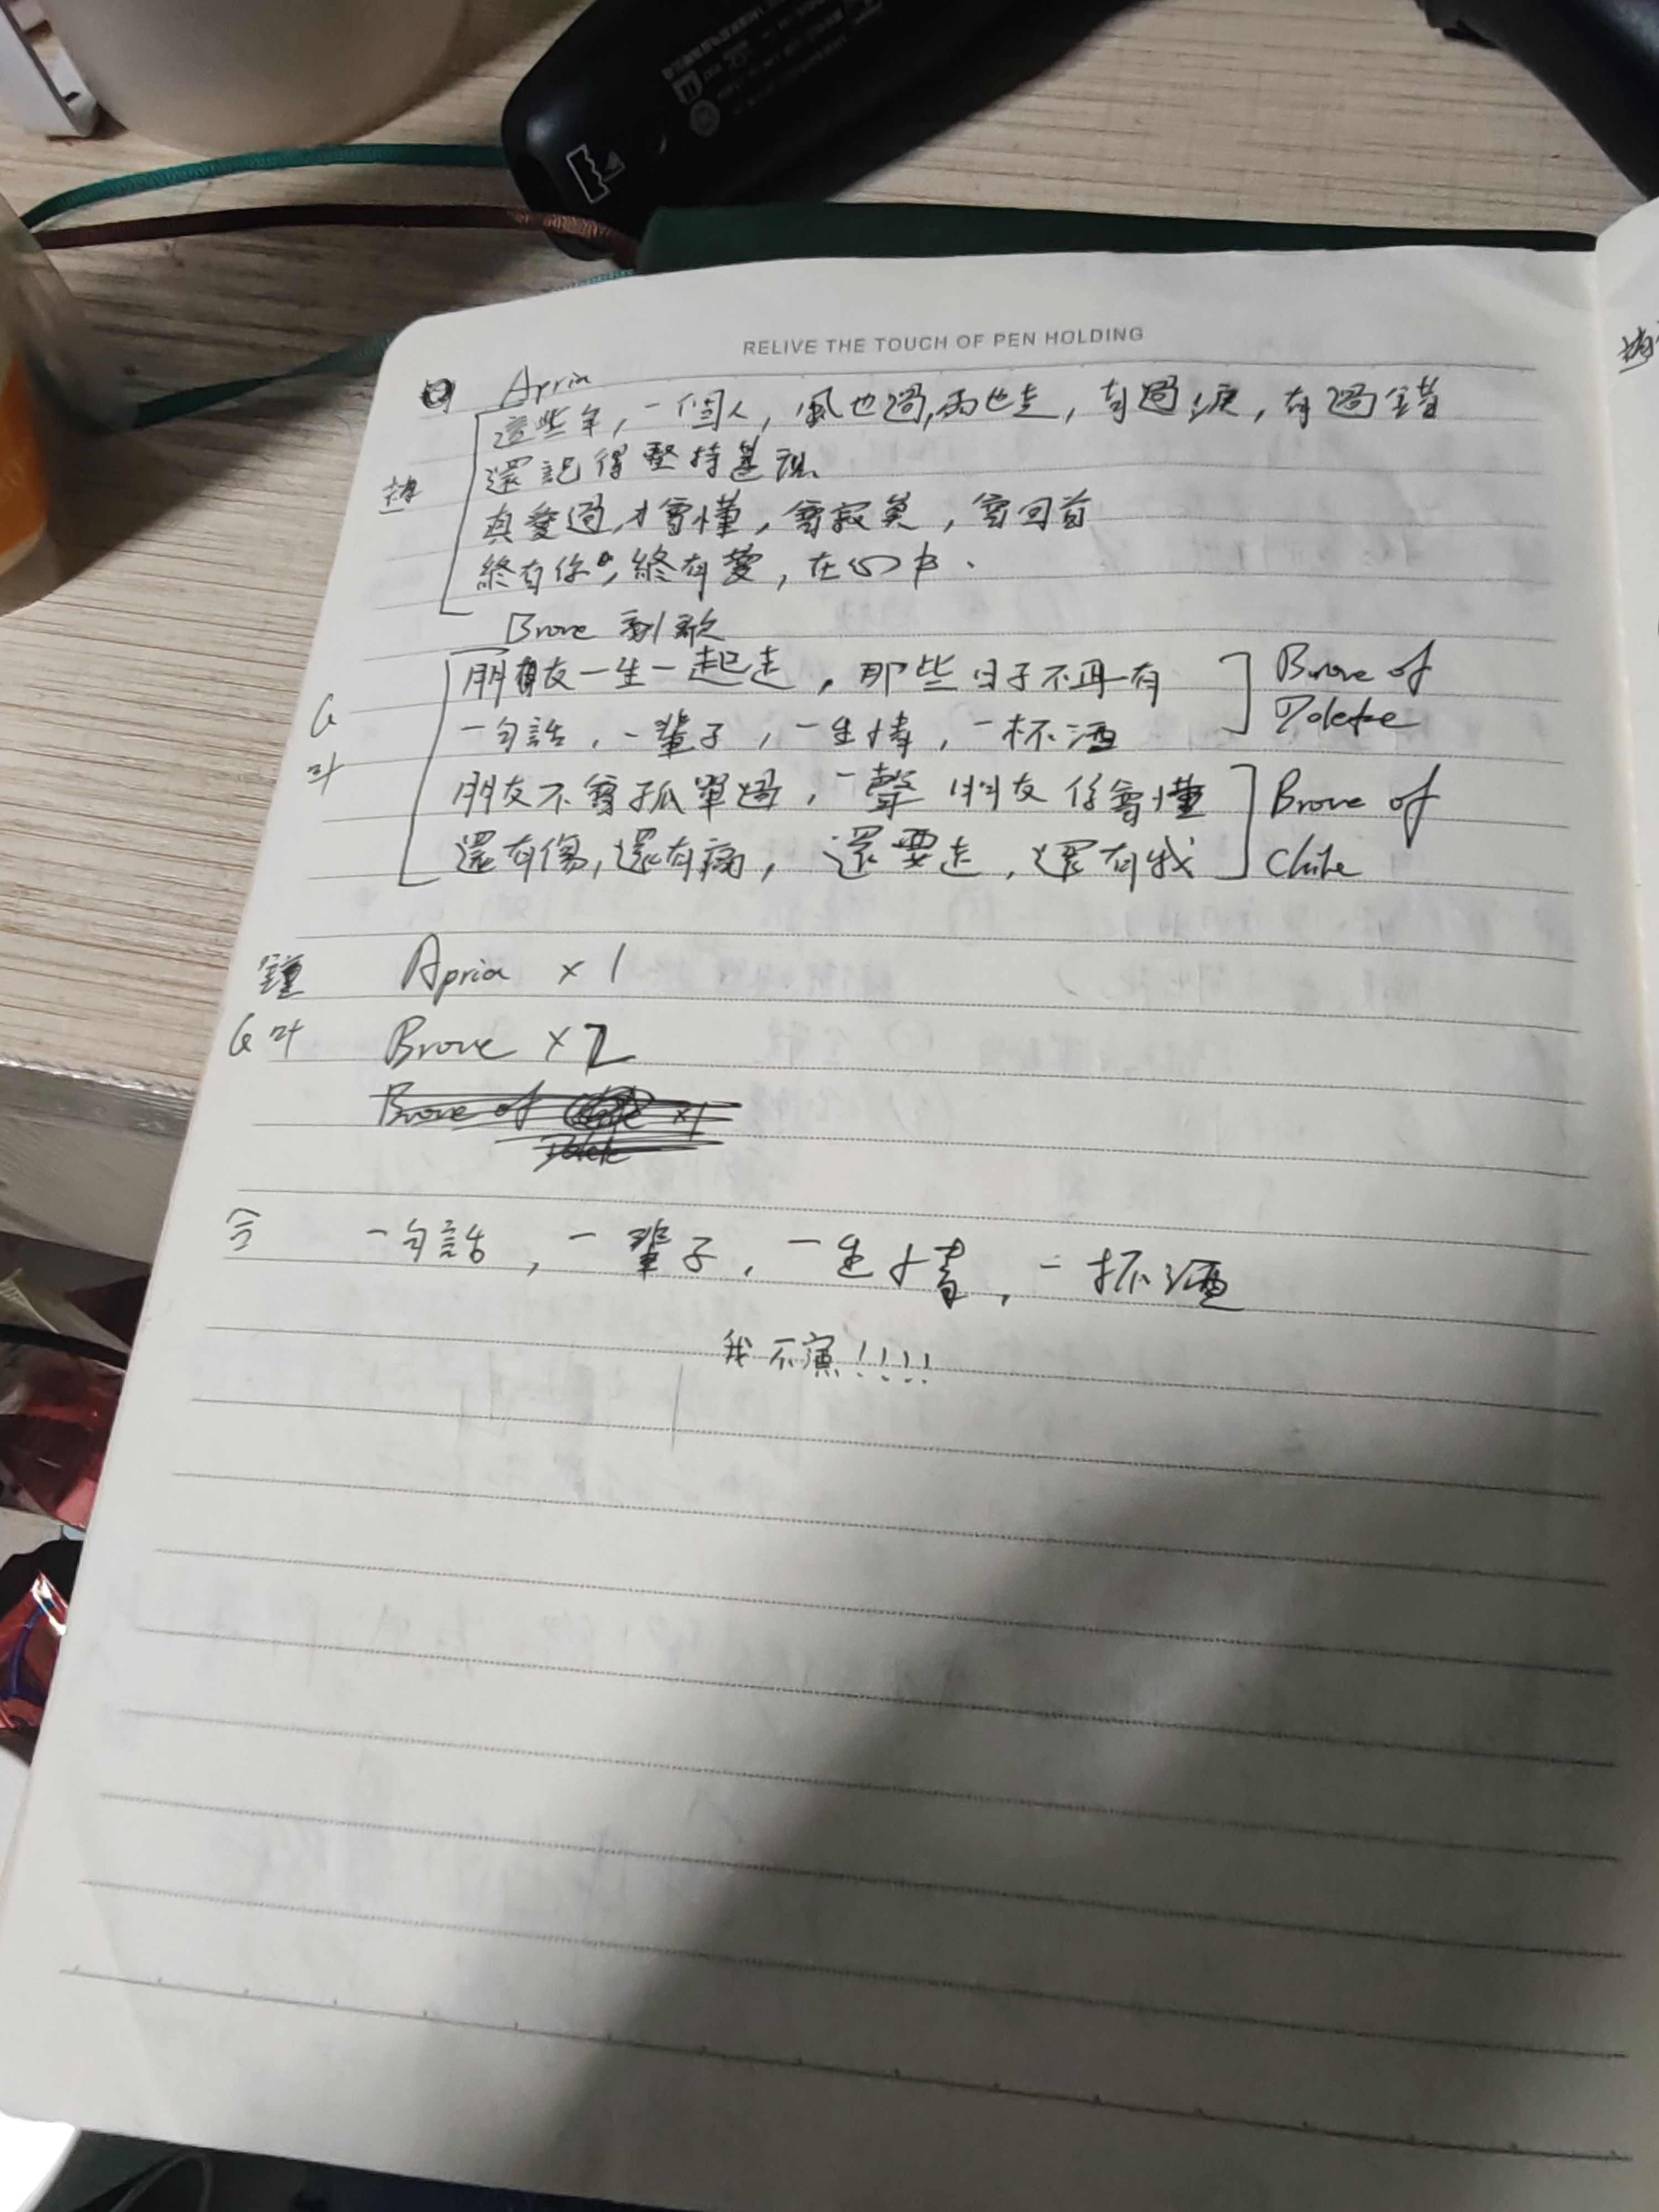 RELIVE THE TOUCH OF PEN HOLDING
Apria
這些年,一個人,風也過,雨也走,有過淚,有過錯
還記得堅持甚麼
真愛過,才會懂,會寂寞,會回首
終有你,終有夢,在心中.
Brove 副歌
朋友一生一起走,那些日子不再有
Brove of
一句話,一輩子,一生情,一杯酒
朋友不會孤單過,一聲朋友你會懂
Brove of
還有傷,還有痛,還要走,還有我
Chile
鐘 Apria × 1
G 叶 Brove × 2
Brove of ×1
合 一句話,一輩子,一生情,一杯酒
我不演!!!!